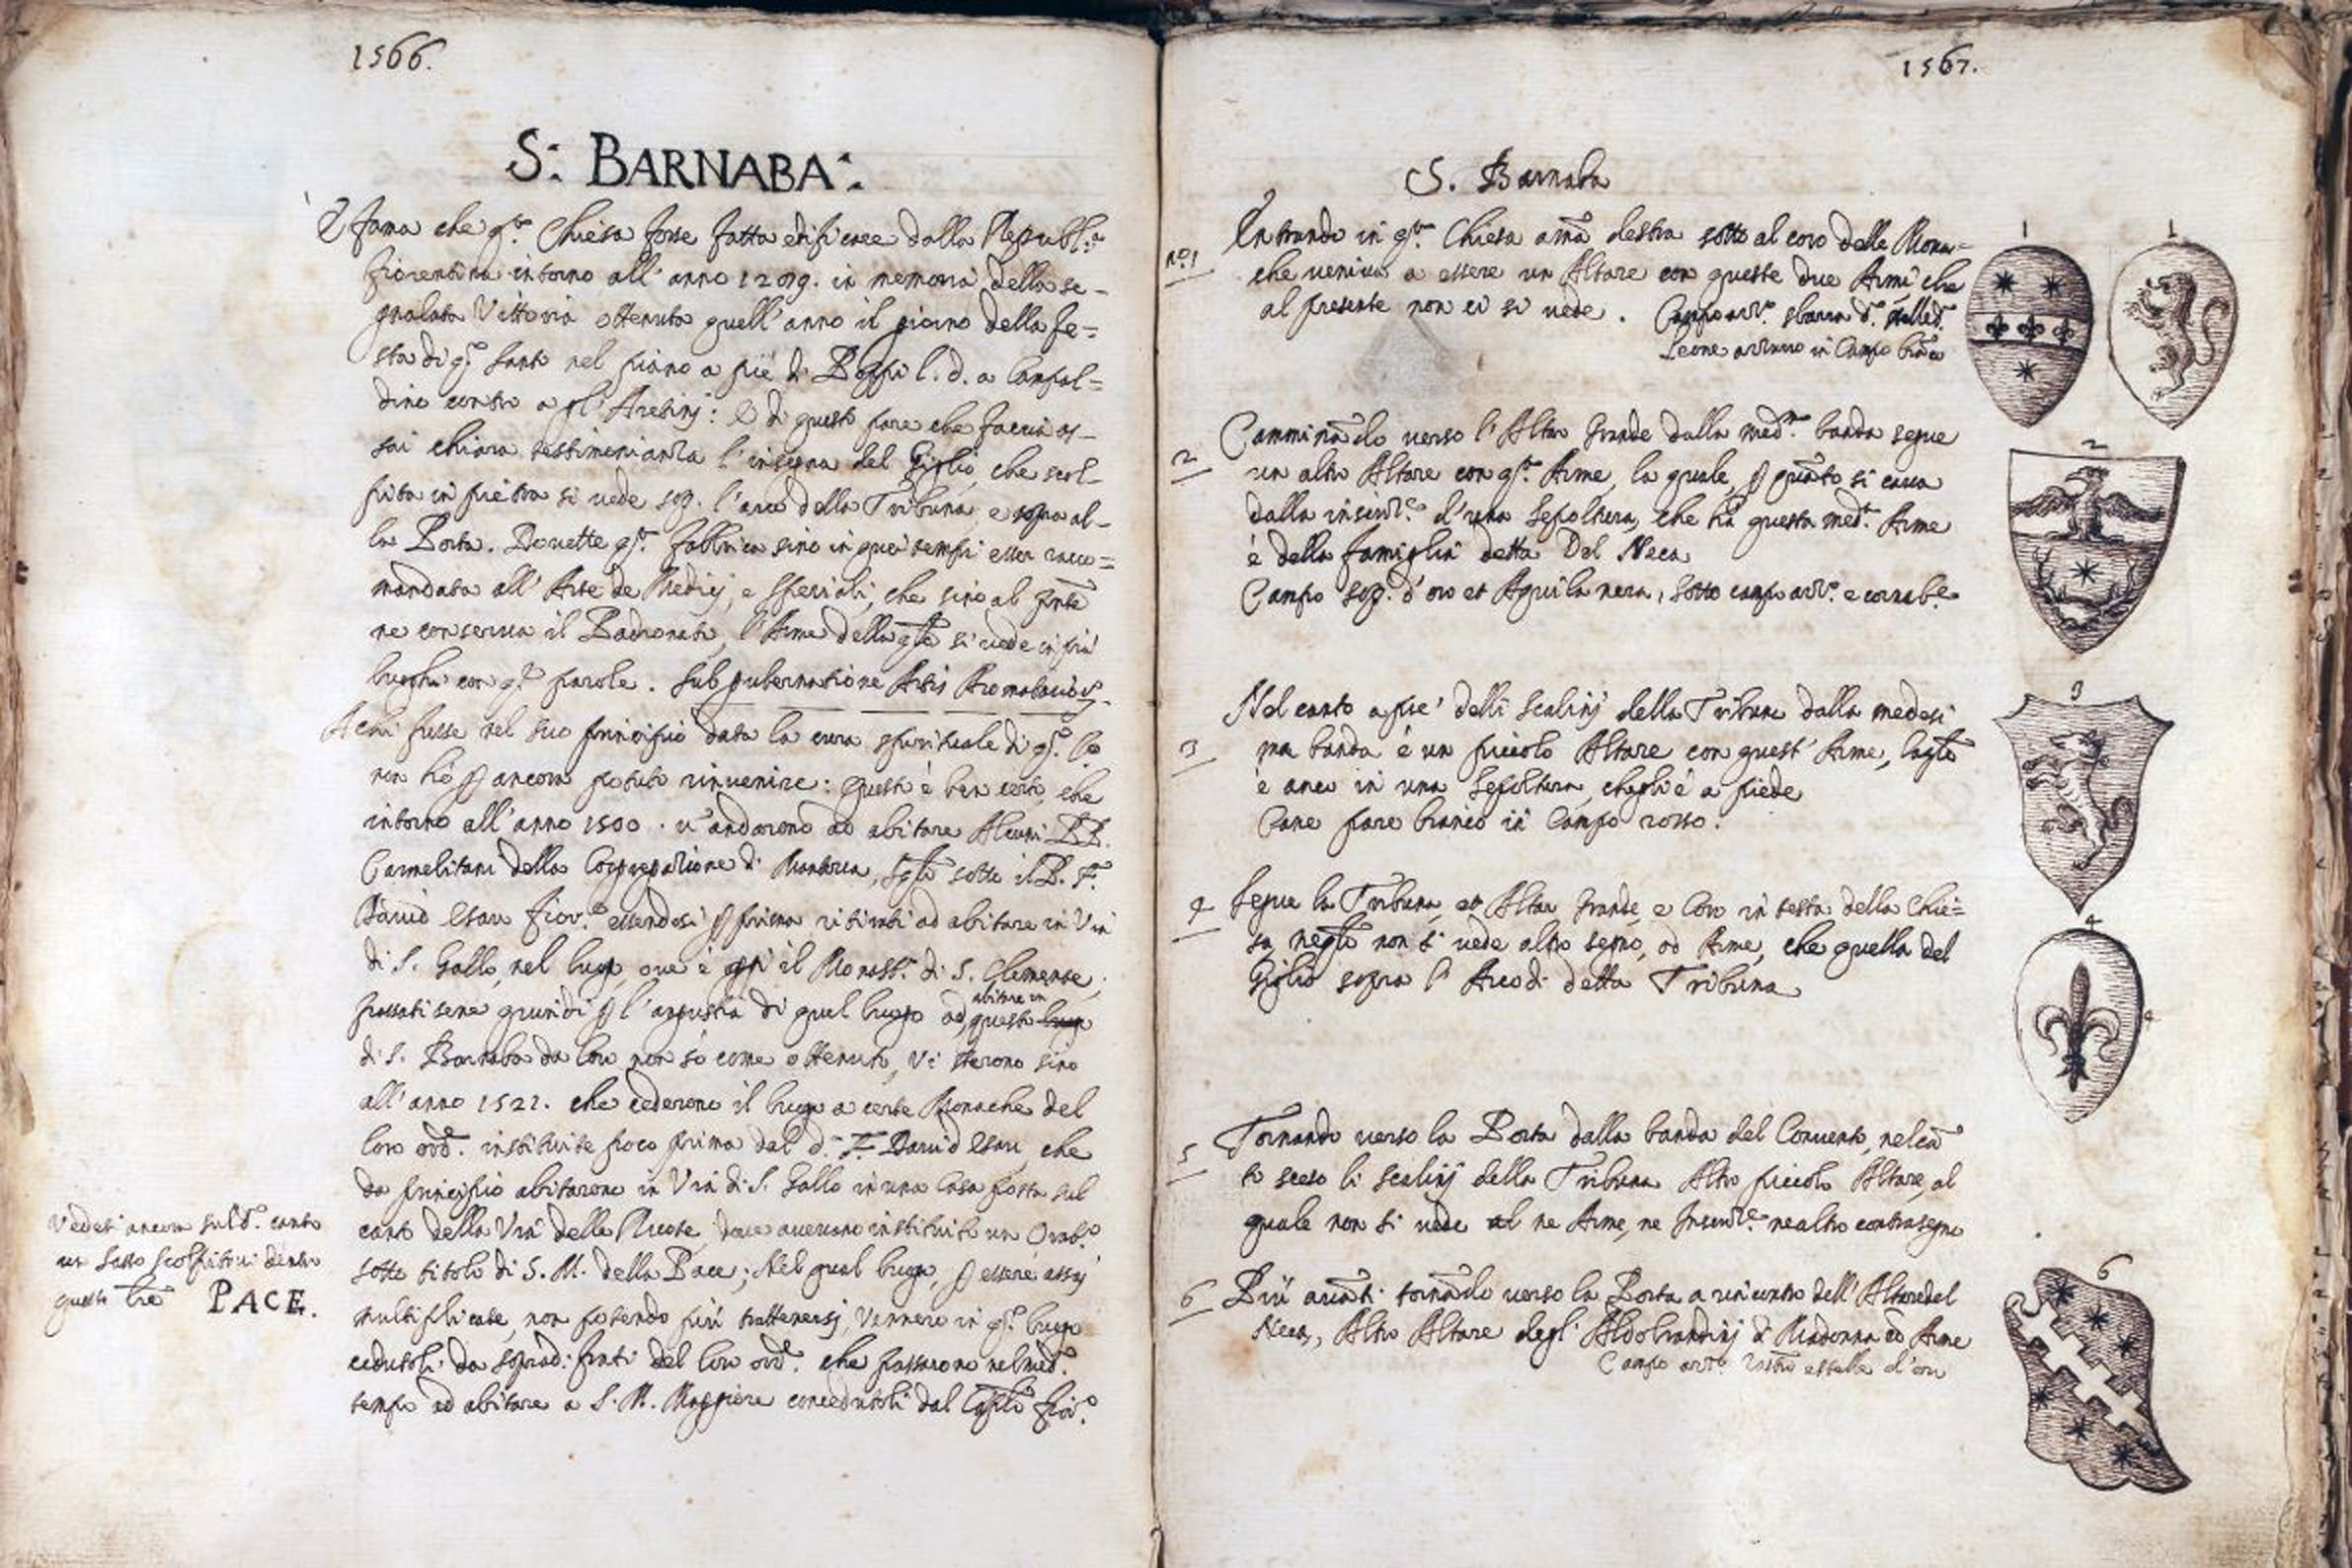 1566.
S: BARNABA:
È fama che q.ta Chiesa fosse fatta edificare dalla Republ.ca
fiorentina intorno all'anno 1289. in memoria della se-
gnalata Vittoria ottenuta quell'anno il giorno della fe=
sta di q.to Santo nel piano a piè di Poppi l. d. a Campal=
dino contro a gl'Aretinj: E di questo pare che faccia as-
sai chiara testimonianza l'insegna del Giglio, che scol-
pita in pietra si vede sop. l'arco della Tribuna, e sopra al-
la Porta. Dovette q.ta fabbrica sino in quei tempi esser racco=
mandata all'Arte de Medicj, e Speziali, che sino al pnte
ne conserva il Padronato, l'Arme della qle si vede in più
luoghi con q.te parole. Sub gubernatione Artis Aromatarior.
A chi fusse nel suo principio data la cura spirituale di q.to
non hò p ancora potuto rinvenire: questo è ben certo, che
intorno all'anno 1500. v'andarono ad abitare Alcuni PP.
Carmelitani della Congregazione di Mantova, sotto il P. F.
David Esau fior.o essendosi p prima ritirati ad abitare in Via
di S. Gallo, nel luogo, ove è oggi il Monast.o di S. Clemente,
passatisene quindi p l'angustia di quel luogo ad abitare in questo luogo
di S. Barnaba da loro non sò come ottenuto, Vi sterono sino
all'anno 1521. che cederono il luogo a certe Monache del
loro ord.e instituite poco prima dal d.o F. David Esau, che
da principio abitarono in Via di S. Gallo in una Casa posta sul
canto della Via delle Ruote, dove avevano instituito un Orat.o
sotto titolo di S. M. della Pace; Nel qual luogo, p essere assaj
multiplicate, non potendo più trattenersj, Vennero in q.to luogo
cedutoli da soprad.i frati del loro ord.e che passarono nel med.o
tempo ad abitare a S. M. Maggiore concedutoli dal Caplo fior.o
Vedesi ancora sul d.o canto
un Sasso scolpitovi dentro
queste lre PACE.
1567.
S. Barnaba
n.o 1 Entrando in q.ta Chiesa a mã destra sotto al coro delle Mona=
che veniva a essere un Altare con queste due Armi che
al presente non ci si vede. Campo azz.o sbarra d.o stelle d.o
Leone azzurro in Campo biãco
1 1
2 Camminãdo verso l'Altar grande dalla med.ma banda segue
un altro Altare con q.ta Arme, la quale, p quãto si cava
dalla inscriz.e d'una Sepoltura, che hà questa med.a Arme
è della famiglia detta Del Neca
Campo sop. d'oro et Aquila nera, sotto campo azz.o e corna b.e
2
3 Nel canto a piè delli Scalinj della Tribuna dalla medesi
ma banda è un piccolo Altare con quest'Arme, laqle
è anco in una Sepoltura, che gli è a piede
Cane pare bianco in Campo rosso.
3
4 Segue la Tribuna, et Altar grande, e Coro in testa della Chie=
sa, negli non si vede altro segno, od Arme, che quella del
Giglio sopra l'Arco di detta Tribuna
4
4
5 Tornando verso la Porta dalla banda del Convento, nel cã
to sceso li scalinj della Tribuna Altro piccolo Altare, al
quale non si vede al ne Arme, ne Inscriz.e ne altro contrasegno
6 Più avãti tornãdo verso la Porta a rincontro dell'Altare del
Neca, Altro Altare degl'Aldobrandinj d Madonna cõ Arme
Campo azz.o rastro e stelle d'oro
6